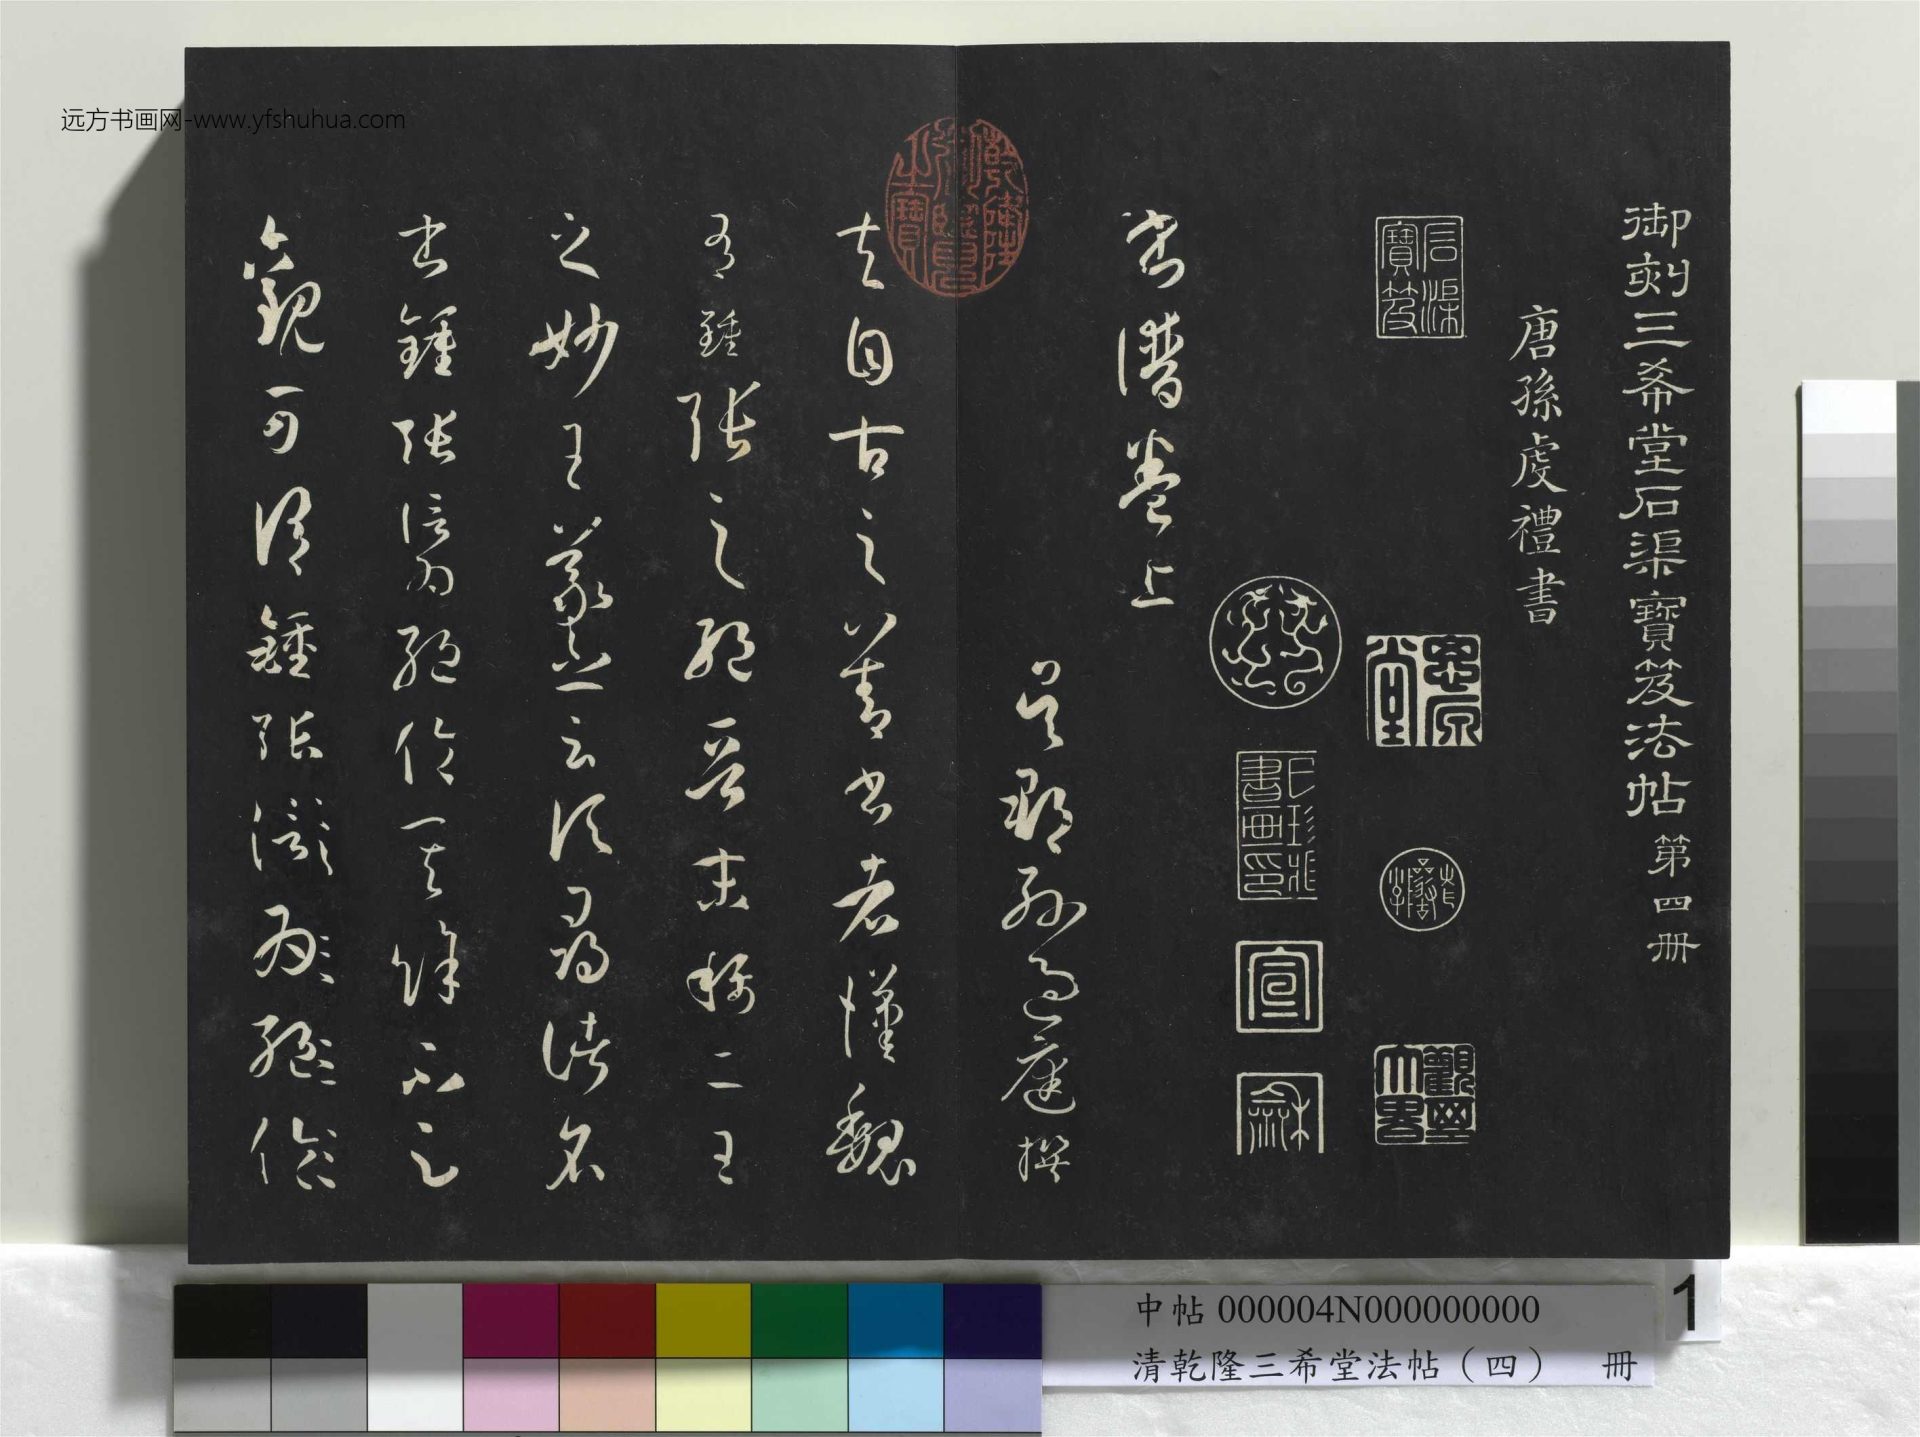 远方书画网-www.yfshuhua.com
御刻三希堂石渠寶笈法帖第四冊
唐孫虔禮書
石渠寶笈
思原堂
觀其大略
宣
龢
書譜卷上
吳郡孫過庭撰
乾隆御覽之寶
夫自古之善書者漢魏
有鍾張之絕晉末稱二王
之妙王羲之云頃尋諸名
書鍾張信為絕倫其餘不足
觀可謂鍾張信為絕倫
中帖 000004N000000000
清乾隆三希堂法帖（四） 冊
1